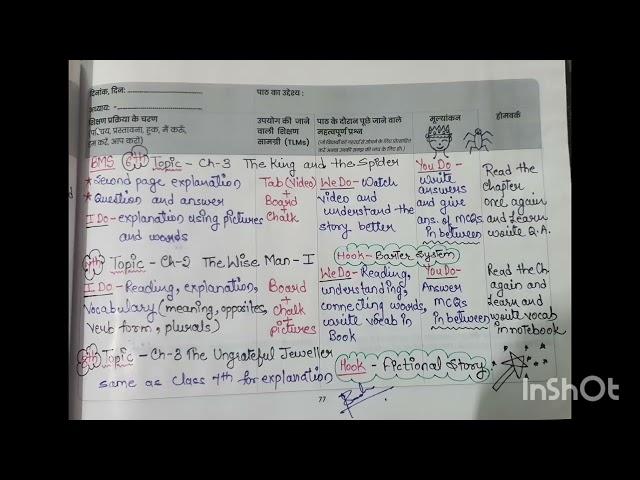 दिनांक, दिन:
पाठ का उद्देश्य :
अध्याय: -
शिक्षण प्रक्रिया के चरण
प्रस्तावना, हुक, मैं करूँ,
हम करें, आप करो)
उपयोग की जाने
वाली शिक्षण
सामग्री (TLMs)
पाठ के दौरान पूछे जाने वाले
महत्वपूर्ण प्रश्न
मूल्यांकन
होमवर्क
EMS 6th Topic - Ch-3 The King and the Spider
* Second page explanation
* Question and answer
I Do - explanation using pictures
and words
Tab (Video)
+
Board
+
Chalk
We Do - Watch
video and
understand the
story better
You Do -
Write
answers
and give
ans. of MCQs
in between
Read the
chapter
once again
and Learn
write Q.A.
Hook - Barter System
7th Topic - Ch-2 The Wise Man - I
I Do - Reading, explanation,
Vocabulary (meaning, opposites,
verb form, plurals)
Board
+
Chalk
+
pictures
We Do - Reading,
understanding,
connecting words,
write vocab in
Book
You Do -
Answer
MCQs
in between
Read the Ch.
again and
Learn and
write vocab
in notebook
8th Topic - Ch-3 The Ungrateful Jeweller
same as class 7th for explanation
Hook - Fictional Story
77
InShOt